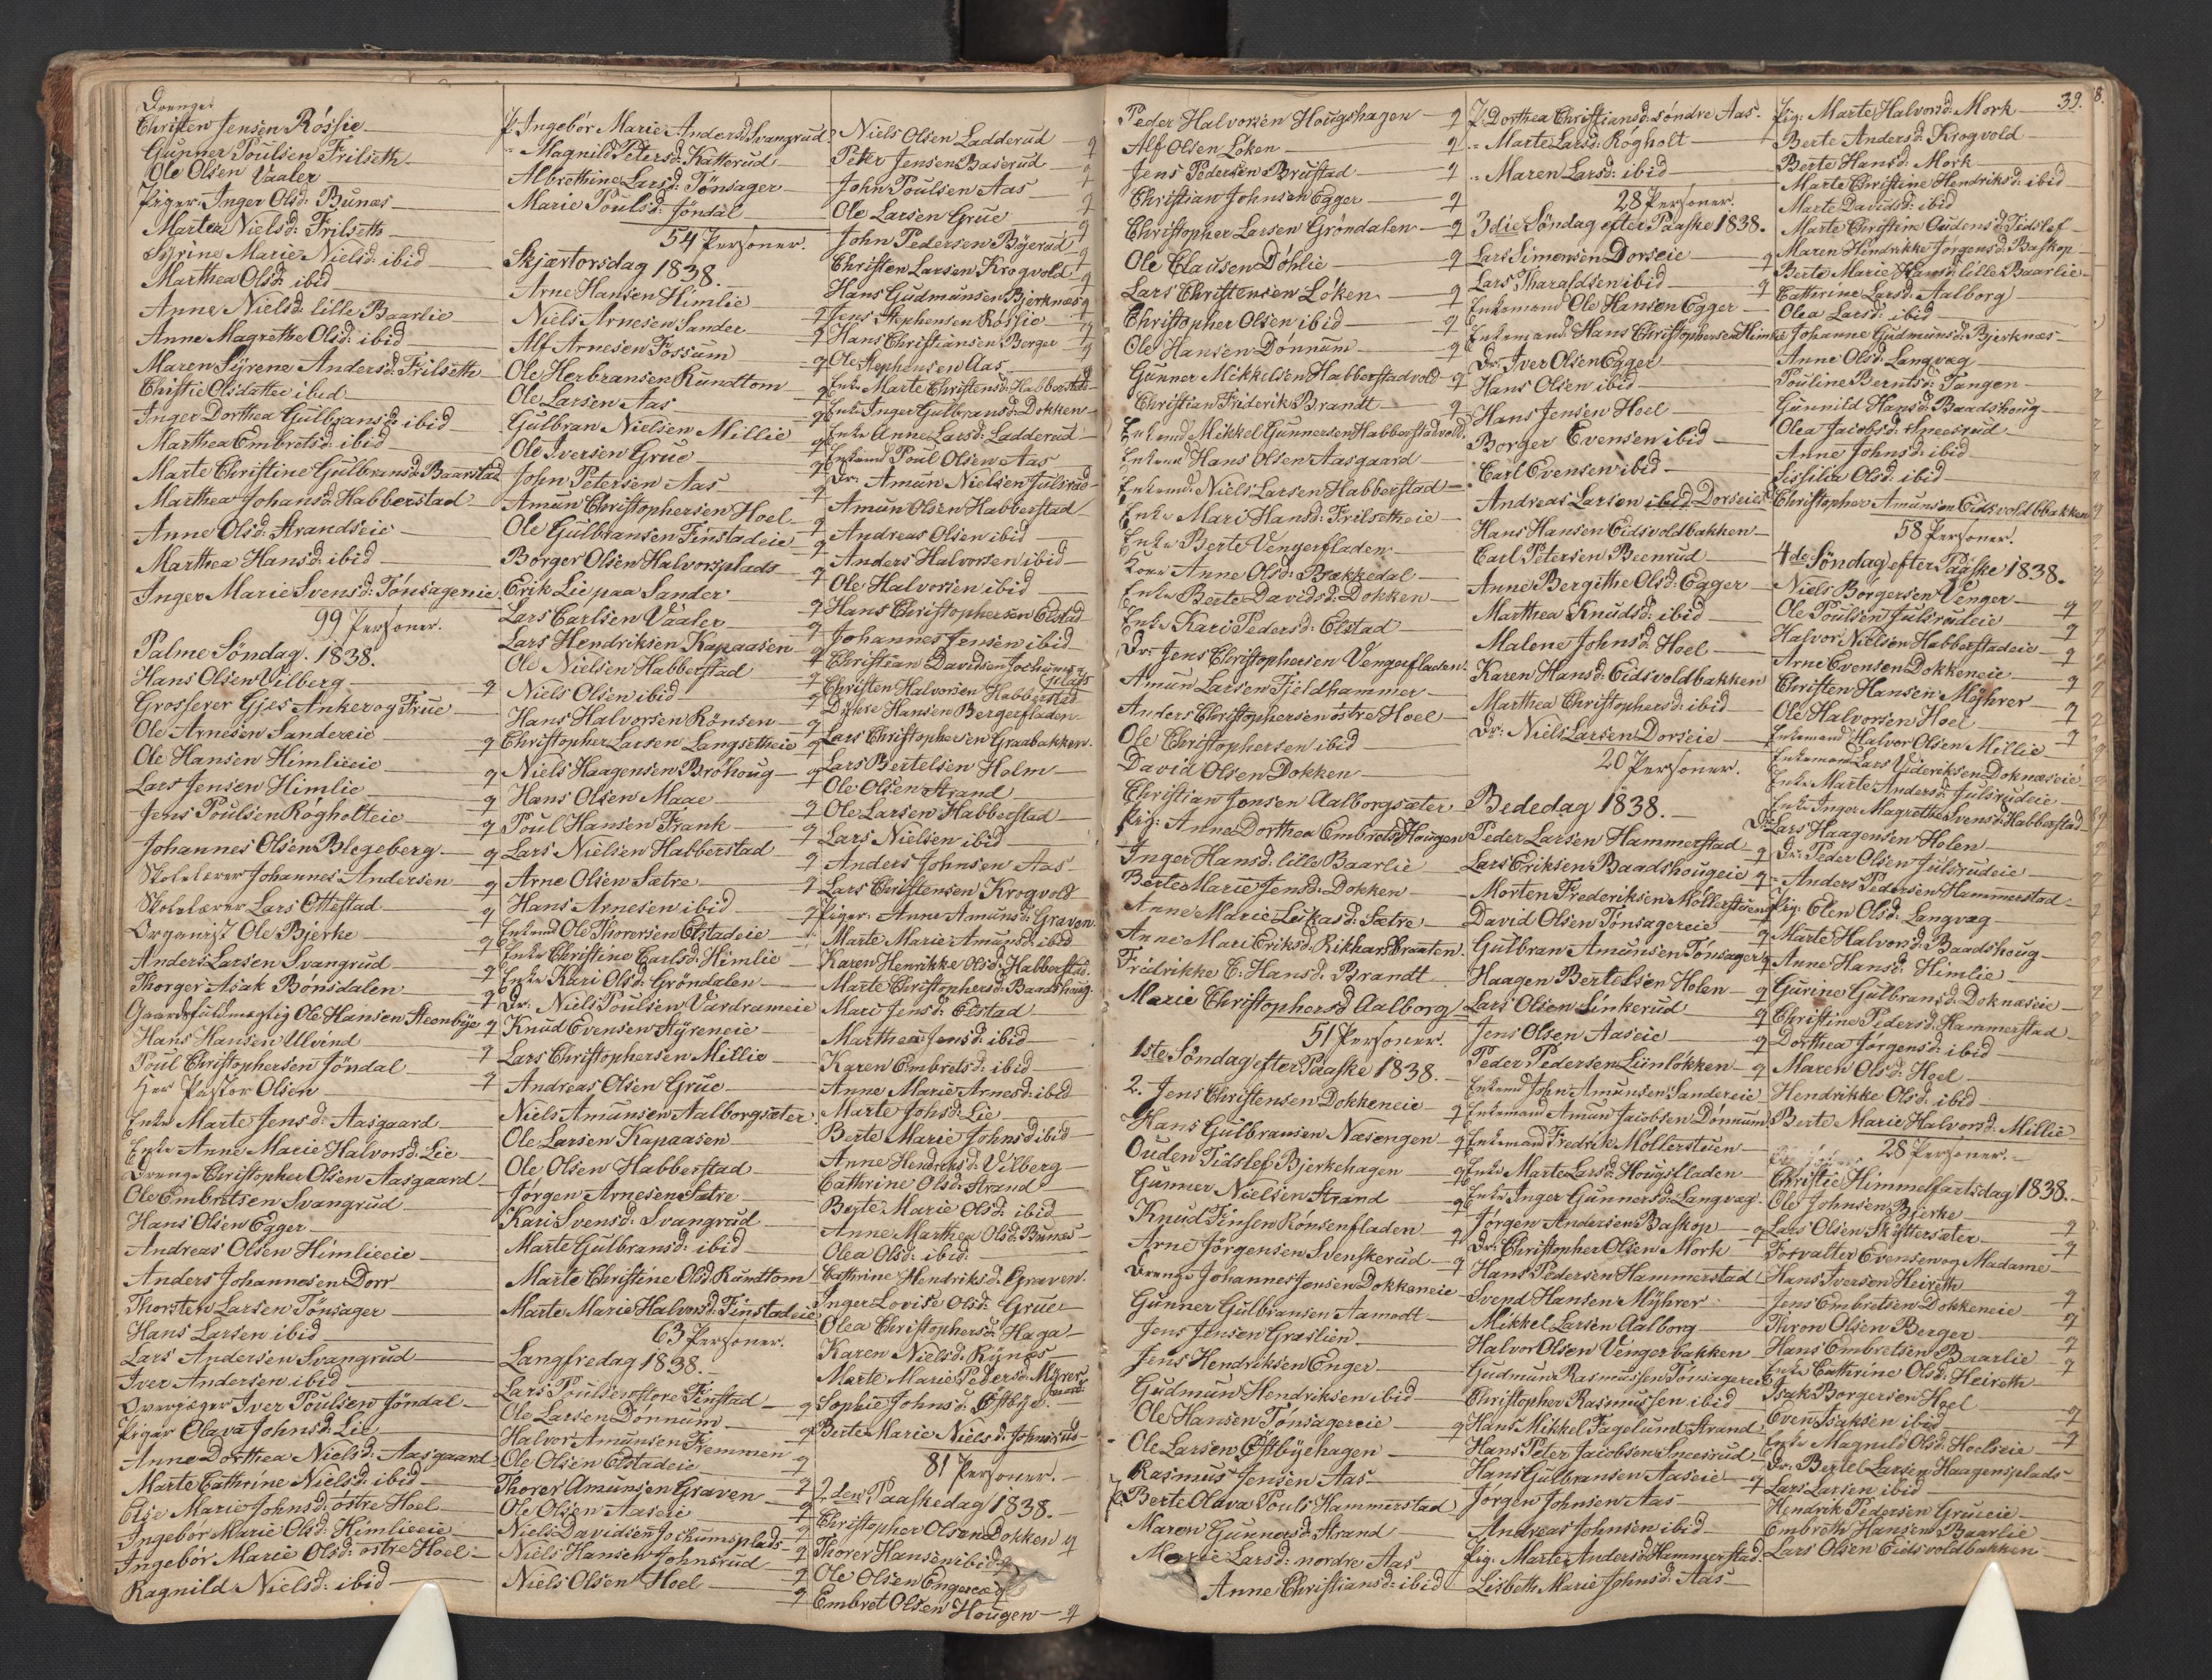 Drenge
Christen Jensen Røssie
Gunner Poulsen Frilseth
Ole Olsen Vaaler
Piger. Inger Olsd: Bunæs
Marten Nielsd: Frilseth
Syrine Marie Nielsd: ibid
Marthea Olsd: ibid
Anne Nielsd: lille Baarlie
Anne Magrethe Olsd: ibid
Maren Syrene Andersd: Frilseth
Christie Olsdatter ibid
Inger Dorthea Gulbransd: ibid
Marthea Embretsd: ibid
Marte Christine Gulbransd: Baarstad
Marthea Johansd: Habberstad
Anne Olsd: Strandseie
Marthea Hansd: ibid
Inger Marie Svensd: Tønsagereie
99 Personer.
Palme Søndag. 1838.
Hans Olsen Vilberg q
Grosserer Gjes Anker og Frue
Ole Arnesen Sandereie q
Ole Hansen Himlieeie q
Lars Jensen Himlie q
Jens Poulsen Røgholteie q
Johannes Olsen Blegeberg q
Skolelærer Johannes Andersen q
Skolelærer Lars Ottestad q
Organist Ole Bjerke q
Anders Larsen Svangrud q
Thorger Asak Bønsdalen q
Gaardsfuldmægtig Ole Hansen Steenbye q
Hans Hansen Ulvind q
Poul Christophersen Jøndal q
Her Pastor Olsen
Enke Marte Jensd: Aasgaard
Enke Anne Marie Halvorsd: Lie
Drenge Christopher Olsen Aasgaard
Ole Embretsen Svangrud
Hans Olsen Egger
Andreas Olsen Himlieeie
Anders Johannesen Dorr
Thorsten Larsen Tønsager
Hans Larsen ibid
Lars Andersen Svangrud
Iver Andersen ibid
Overjæger Iver Poulsen Jøndal
Piger Olava Johnsd: Lie
Anne Dorthea Nielsd: Aasgaard
Marte Cathrine Nielsd: ibid
Else Marie Johnsd: østre Hoel
Ingebor Marie Olsd: Himlieeie
Ingebor Marie Olsd: østre Hoel
Ragnild Nielsd: ibid
P. Ingebor Marie Andersd: Svangrud
" Magnild Petersd: Katterud
Albrethine Larsd: Tønsager
Marie Poulsd: Jøndal
54 Personer.
Skjærtorsdag 1838.
Arne Hansen Himlie
Niels Arnesen Sander q
Alf Arnesen Fossum q
Ole Herbransen Rundtom q
Ole Larsen Aas q
Gulbran Nielsen Millie q
Ole Iversen Grue q
John Petersen Aas q
Amun Christophersen Hoel q
Ole Gulbransen Finstadeie q
Borger Olsen Halvorsplads q
Erik Lie paa Sander
Lars Carlsen Vaaler q
Lars Hendriksen Kapaasen q
Ole Nielsen Habberstad q
Niels Olsen ibid q
Hans Halvorsen Rønsen q
Christopher Larsen Langsetheie q
Niels Haagensen Brøhoug q
Hans Olsen Maae q
Poul Hansen Frank q
Lars Nielsen Habberstad q
Arne Olsen Sætre q
Hans Arnesen ibid q
Enkemd Ole Thoresen Elstadeie
Enke Christine Carlsd: Himlie
Enke Kari Olsd: Grøndalen
Dr. Niels Poulsen Vardrameie
Knud Evensen Styreneie
Lars Christophersen Millie
Andreas Olsen Grue
Niels Amunsen Aalborgsæter
Ole Larsen Kapaasen
Ole Olsen Habberstad
Jørgen Arnesen Sætre
Kari Svensd: Svangrud
Marte Gulbransd: ibid
Marte Christine Olsd: Rundtom
Marte Marie Halvorsd: Finstadeie
63 Personer.
Langfredag 1838.
Lars Poulsen store Finstad q
Ole Larsen Dønnum q
Halvor Amunsen Fremmen
Ole Olsen Elstadeie q
Thorer Amunsen Graven q
Ole Olsen Aaseie q
Niels Davidsen Jockumsplads q
Niels Hansen Johnsrud q
Niels Olsen Hoel q
Niels Olsen Ladderud q
Peter Jensen Baserud q
John Poulsen Aas q
Ole Larsen Grue q
John Pedersen Byerud q
Christen Larsen Krogvold q
Hans Gudmunsen Bjerknæs q
Jens Stephensen Røssie q
Hans Christiansen Berger q
Ole Stephensen Aas
Enke Marte Christensd: Habberstad
Enke Inger Gulbransd: Dokken
Enke Anne Larsd: Ladderud
Enkemd Poul Olsen Aas
Dr: Amun Nielsen Julsrud
Amun Olsen Habberstad
Andreas Olsen ibid
Anders Halvorsen ibid
Ole Halvorsen ibid
Hans Christophersen Elstad
Johannes Jensen ibid
Christian Davidsen Jochumsplads
Christen Halvorsen Habberstad
Dyhre Hansen Bergerfladen
Lars Christophersen Graabakken
Lars Bertelsen Holm
Ole Olsen Strand
Ole Larsen Habberstad
Lars Nielsen ibid
Anders Johnsen Aas
Lars Christensen Krogvold
Piger. Anne Amunsd: Graven
Marte Marie Amunsd: ibid
Karen Henrikke Olsd: Habberstad
Marte Christophersd: Baadshoug
Mari Jensd: Elstad
Marthea Jensd: ibid
Karen Embretsd: ibid
Anne Marie Arnesd: ibid
Marte Johsd: Lie
Berte Marie Johnsd ibid
Anne Hendriksd: Vilberg
Cathrine Olsd: Strand
Berte Marie Olsd: ibid
Anne Marthea Olsd: Bunæs
Olea Olsd: ibid
Cathrine Hendriksd. Graven.
Inger Lovise Olsd: Grue
Olea Christophersd: Haga
Karen Nielsd: Rynæs
Marte Marie Pedersd: Myrer
Sophie Johnsd: Østbye
Berte Marie Nielsd: Johnsrud
81 Personer.
2den Paaskedag 1838.
Christopher Olsen Dokken q
Thorer Hansen ibid q
Ole Olsen Engereie q
Embret Olsen Hougen q
39.
Peder Halvorsen Hougshagen q
Alf Olsen Løken q
Jens Pedersen Brustad q
Christian Johnsen Egger q
Christopher Larsen Grøndalen q
Ole Clausen Døhlie q
Lars Christensen Løken q
Christopher Olsen ibid q
Ole Hansen Dønnum q
Gunner Mikkelsen Habberstadvold q
Christian Friderik Brandt q
Enkemd Mikkel Gunnersen Habberstadvold
Enkemd Hans Olsen Aasgaard
Enkemd: Niels Larsen Habberstad
Enke Mari Hansd: Frilsetheie
Enke Berte Vengerfladen
Kone Anne Olsd: Brækkedal
Enke Berte Davidsd: Dokken
Enke Kari Pedersd: Elstad
Dr: Jens Christophersen Vengerfladen
Amun Larsen Fjeldhammer
Anders Christophersen østre Hoel
Ole Christophersen ibid
David Olsen Dokken
Christian Jonsen Aalborgsæter
Pig: Anne Dorthea Embretsd Hougen
Inger Hansd: lille Baarlie
Berte Marie Jensd: Dokken
Anne Marie Lukasd: Sætre
Anne Mari Eriksd: Rikhardsbraaten.
Fridrikke C. Hansd: Brandt
Marie Christophersd Aalborg
51 Personer.
1ste Søndag efter Paaske 1838.
2. Jens Christensen Dokkeneie q
Hans Gulbransen Næsengen q
Ouden Tidslef Bjerkehagen q
Gunner Nielsen Strand q
Knud Finsen Rønsenfladen q
Arne Jørgensen Svenskerud q
Drenge Johannes Jensen Dokkeneie
Gunner Gulbransen Aamodt
Jens Jensen Græslien
Jens Hendriksen Enger
Gudmun Hendriksen ibid
Ole Hansen Tønsagereie q
Ole Larsen Østbyehagen
Rasmus Jensen Aas
P Berte Olava Pouls Hammerstad
Maren Gunnersd: Strand
Marie Larsd: nordre Aas
Anne Christiansd: ibid
P Dorthea Christiansd: søndre Aas.
" Marte Larsd: Røgholt
" Maren Larsd: ibid
28 Personer.
3die Søndag efter Paaske 1838.
Lars Simensen Dorseie q
Lars Tharaldsen ibid q
Enkemand Ole Hansen Egger
Enkemand: Hans Christophersen Himlie
Dr: Iver Olsen Egger
Hans Olsen ibid
Hans Jensen Hoel
Borger Evensen ibid
Carl Evensen ibid
Andreas Larsen ibid Dorseie
Hans Hansen Eidsvoldbakken
Carl Petersen Beenrud
Anne Bergithe Olsd: Egger
Marthea Knudsd: ibid
Malene Johnsd: Hoel
Karen Hansd: Eidsvoldbakken
Marthea Christophersd: ibid
Dr: Niels Larsen Dorseie
20 Personer.
Bededag 1838.
Peder Larsen Hammerstad q
Lars Eriksen Baadshougeie q
Morten Frederiksen Møllerstuen q
David Olsen Tønsagereie q
Gulbran Amunsen Tønsager q
Haagen Bertelsen Holen q
Lars Olsen Linkerud q
Jens Olsen Aaseie q
Peder Pedersen Liinløkken q
Enkemd John Amunsen Sandereie
Enkemand Amun Jacobsen Dønnum
Enkemand Fredrik Møllerstuen
Enke Marte Larsd: Hougsfladen
Enke Inger Gunnersd: Langvag
Jørgen Andersen Baskop q
Dr: Christopher Olsen Mork
Hans Pedersen Hammerstad
Svend Hansen Myhrer
Mikkel Larsen Aalborg
Halvor Olsen Vengerbakken
Gudmun Rasmussen Tønsagereie
Christopher Rasmussen ibid
Hans Mikkel Fagelund Strand
Hans Peter Jacobsen Sneesrud
Hans Gulbransen Aaseie q
Jørgen Johnsen Aas
Andreas Johnsen ibid
Pig. Marte Andersd Hammerstad
Lisbeth Marie Johnsd: Aas
Pig: Marte Halvorsd: Mork
Berte Andersd: Krogvold
Berte Hansd: Mork
Marte Christine Hendriksd: ibid
Marte Davidsd: ibid
Marte Christine Oudensd: Tidslef
Maren Hendrikke Jørgensd: Baskop
Berte Marie Hansd: lille Baarlie
Cathrine Larsd: Aalborg
Olea Larsd: ibid
Johanne Gudmunsd: Bjerknæs
Anne Olsd: Langvag
Pouline Berntsd: Tangen
Gunnild Hansd: Baadshoug
Olea Jacobsd: Sneesrud
Anne Johnsd: ibid
Sissilie Olsd: ibid
Christopher Amunsen Eidsvoldbakken q
58 Personer.
4de Søndag efter Paaske 1838.
Niels Børgersen Venger q
Ole Poulsen Julsrudeie q
Halvor Nielsen Habberstadeie q
Arne Evensen Dokkeneie q
Christen Hansen Myhrer q
Ole Halvorsen Hoel q
Enkemand Halvor Olsen Millie
Enkemand Lars Videriksen Doknæseie
Enke Marte Andersd: Julsrudeie
Enke Inger Magrethe Svensd: Habberstad
Dr: Lars Haagensen Holen
Dr: Peder Olsen Julsrudeie
" Anders Pedersen Hammerstad
Pig: Elen Olsd: Langvag
Marte Halvorsd: Baadshoug
Anne Hansd: Himlie
Gurine Gulbransd: Doknæseie
Christine Pedersd: Hammerstad
Dorthea Jørgensd: ibid
Maren Olsd: Hoel
Hendrikke Olsd: ibid
Berte Marie Halvorsd: Millie
28 Personer.
Christie Himmelfartsdag 1838.
Ole Johnsen Bjerke
Lars Olsen Skyttersæter q
Forvalter Evensen og Madame q
Hans Iversen Heireth
Jens Embretsen Dokkeneie q
Thron Olsen Berger q
Hans Embretsen Baarlie q
Enke Cathrine Olsd: Heireth q
Isak Borgersen Hoel
Even Isaksen ibid q
Enke Magnild Olsd: Hoelseie q
Dr: Bertel Larsen Haagensplads
Lars Larsen ibid
Hendrik Pedersen Grueeie
Embreth Hansen Baarlie
Lars Olsen Eidsvoldbakken